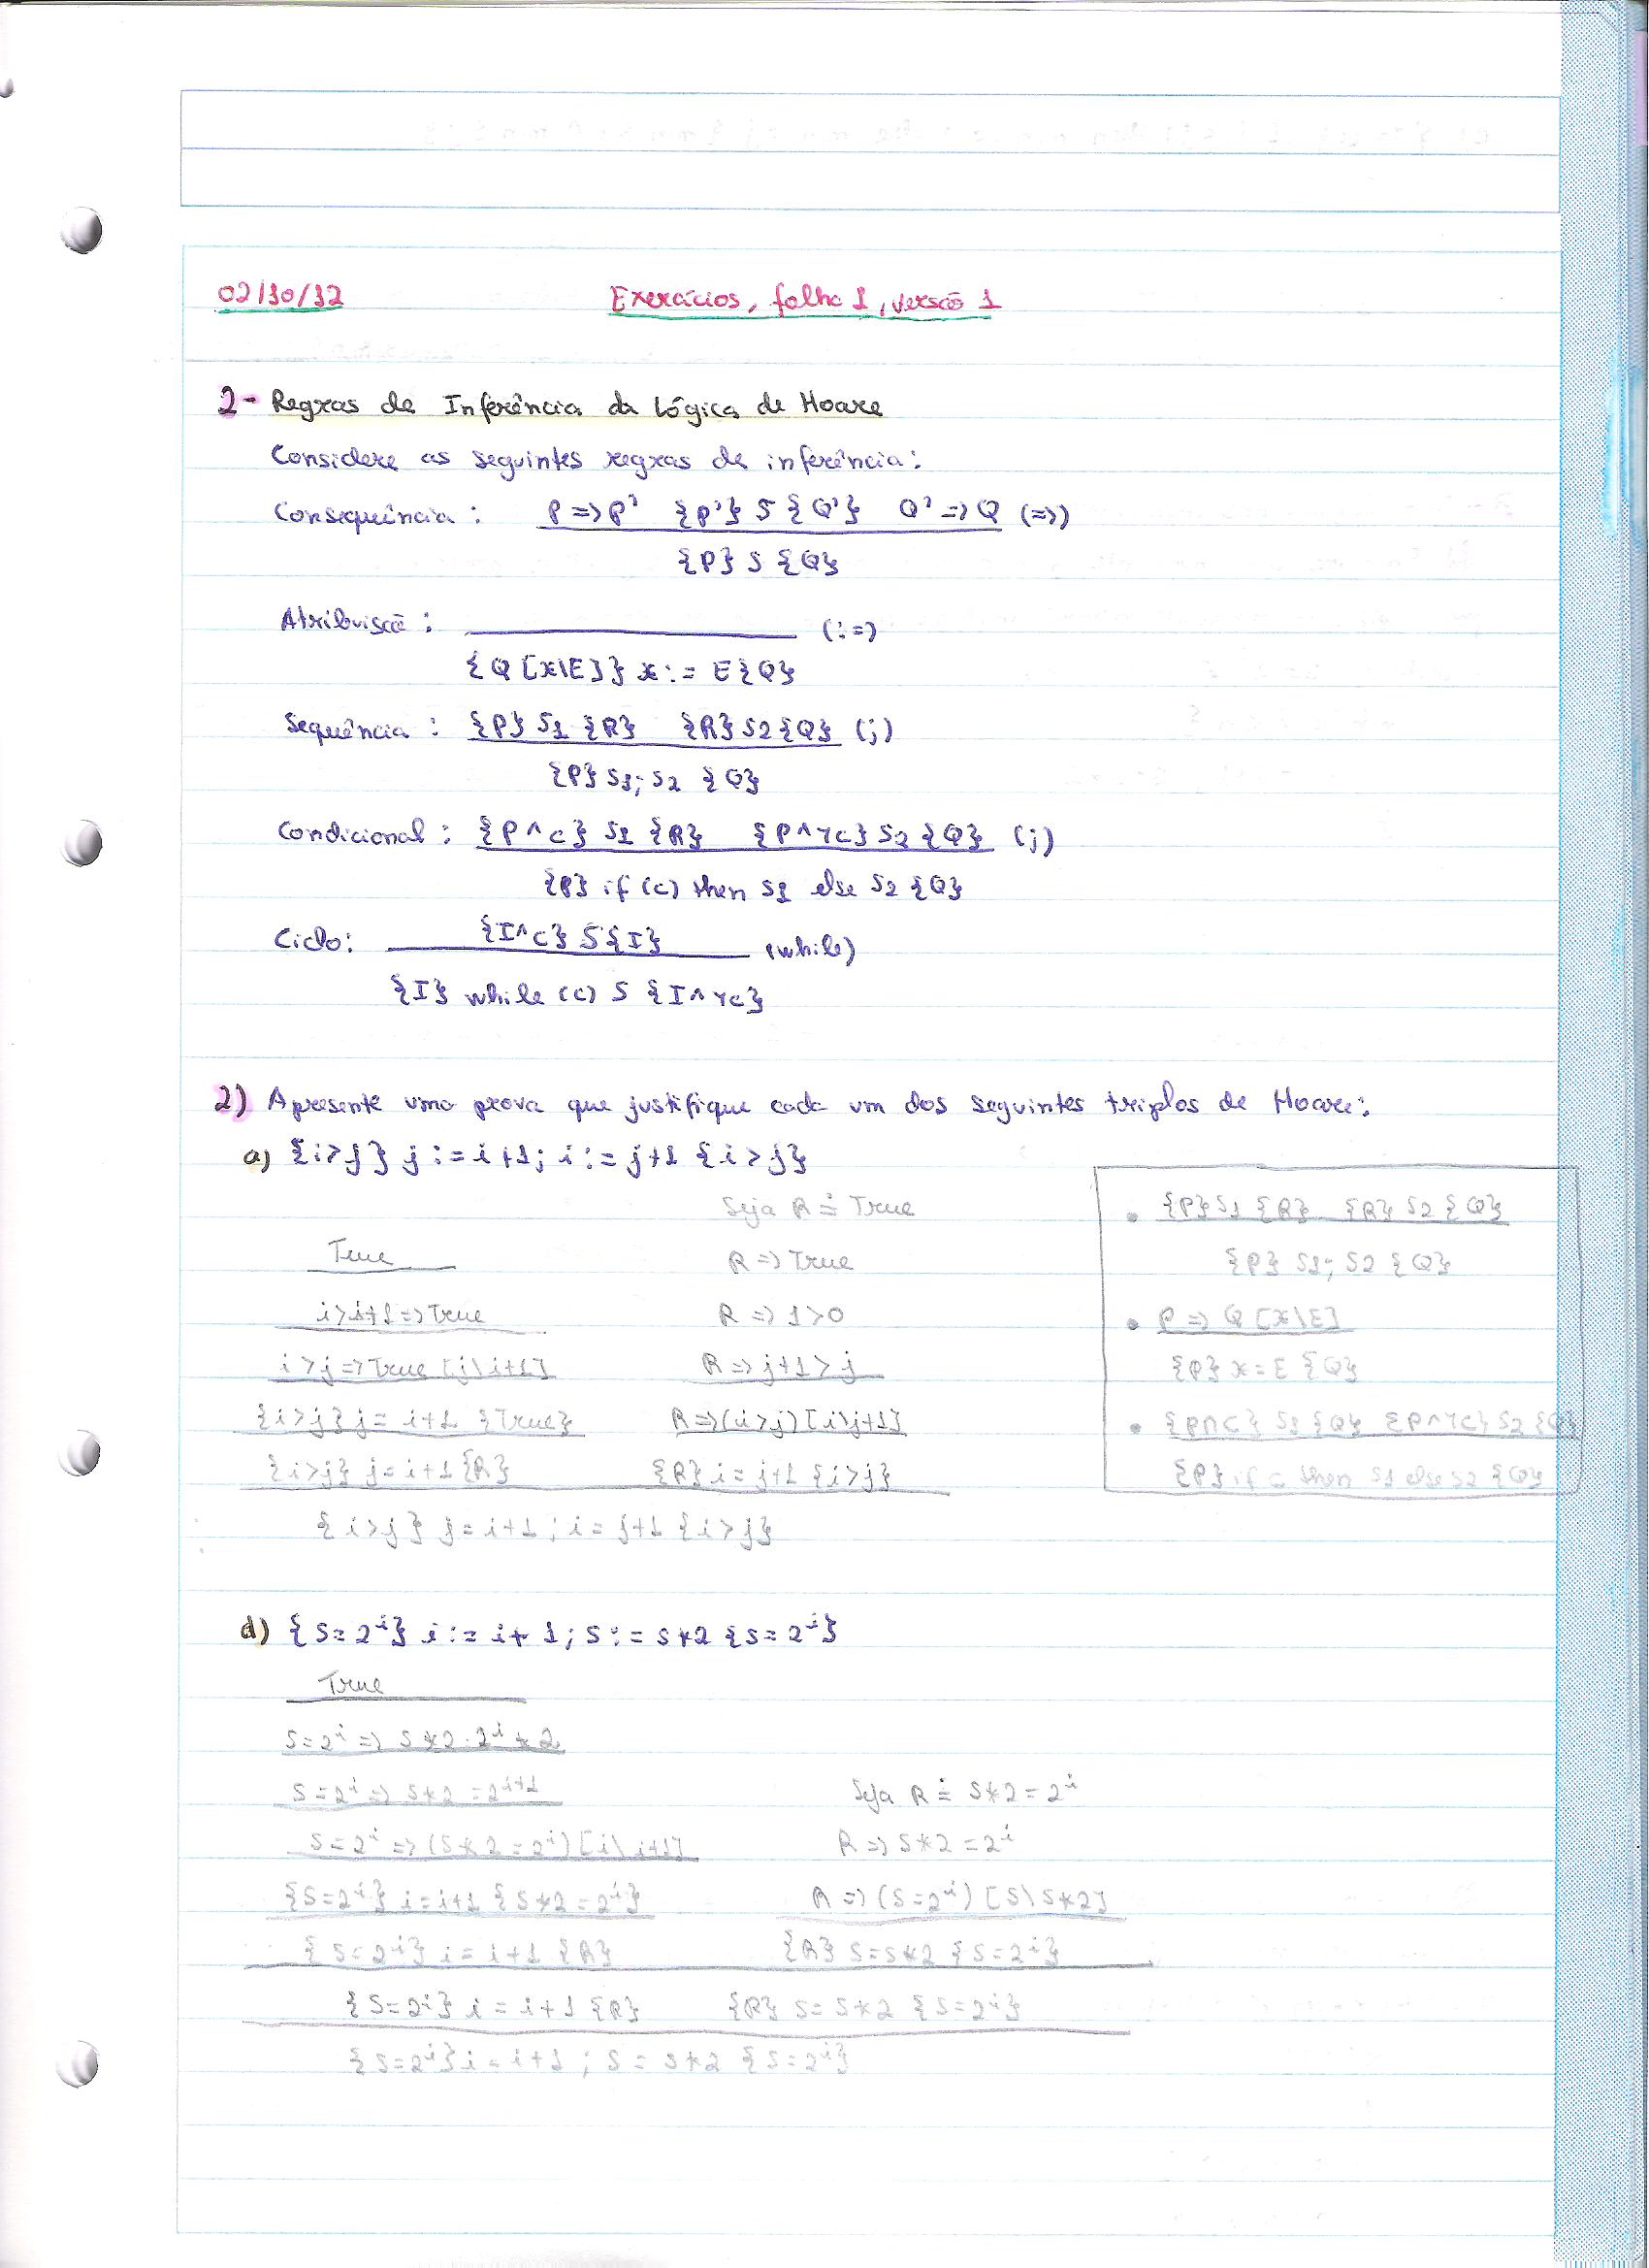 02/10/12
Exercícios, folha 1, versão 1
2- Regras de Inferência da Lógica de Hoare
Considere as seguintes regras de inferência:
Consequência : P => P' {P'} S {Q'} Q' => Q (=>)
{P} S {Q}
Atribuiscã : (:=)
{Q [x\E]} x := E {Q}
Sequência : {P} S1 {R} {R} S2 {Q} (;)
{P} S1; S2 {Q}
Condicional : {P ^ c} S1 {R} {P ^ ¬c} S2 {Q} (;)
{P} if (c) then S1 else S2 {Q}
Ciclo: {I ^ c} S {I} (while)
{I} while (c) S {I ^ ¬c}
2) Apresente uma prova que justifique cada um dos seguintes triplos de Hoare:
a) {i > j} j := i + 1; i := j + 1 {i > j}
Seja R ≐ True
True
R => True
i > i+1 => True
R => 1 > 0
i > j => True [j\i+1]
R => j+1 > j
{i > j} j = i+1 {True}
R => (i > j) [i\j+1]
{i > j} j = i+1 {R}
{R} i = j+1 {i > j}
{i > j} j = i+1 ; i = j+1 {i > j}
• {P} S1 {R} {R} S2 {Q}
{P} S1; S2 {Q}
• P => Q [x\E]
{P} x = E {Q}
• {P ∩ C} S1 {Q} {P ^ ¬C} S2 {Q}
{P} if c then S1 else S2 {Q}
d) {S = 2^i} i := i + 1; S := S * 2 {S = 2^i}
True
S = 2^i => S * 2 = 2^i * 2
S = 2^i => S * 2 = 2^i+1
Seja R ≐ S * 2 = 2^i
S = 2^i => (S * 2 = 2^i) [i\i+1]
R => S * 2 = 2^i
{S = 2^i} i = i+1 {S * 2 = 2^i}
R => (S = 2^i) [S\S*2]
{S = 2^i} i = i+1 {R}
{R} S = S * 2 {S = 2^i}
{S = 2^i} i = i+1 {R} {R} S = S * 2 {S = 2^i}
{S = 2^i} i = i+1 ; S = S * 2 {S = 2^i}